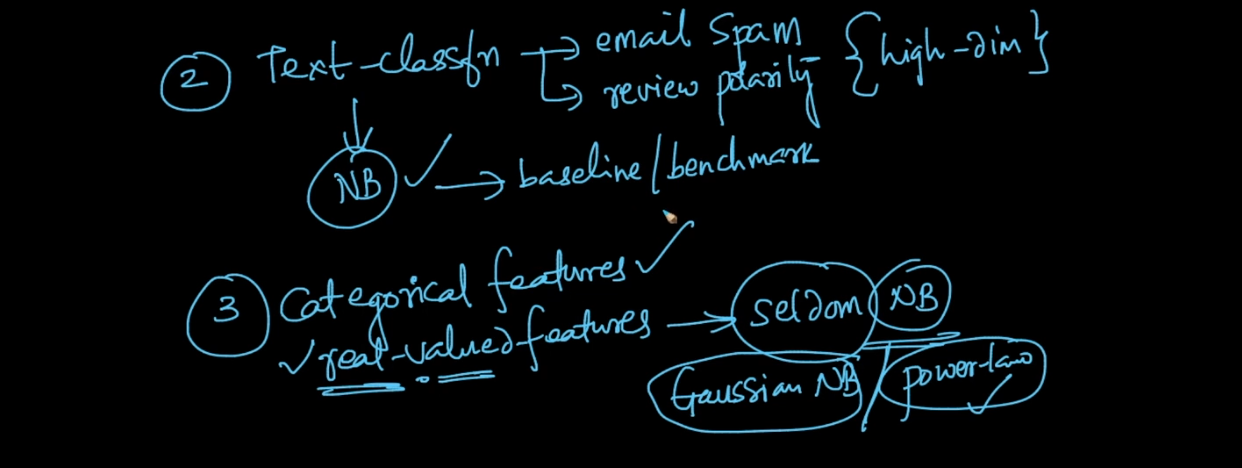 2 Text-classfn → email Spam {high-dim}
→ review polarity
NB ✓ → baseline/benchmark
3 Categorical features ✓
✓ real-valued features → seldom NB
Gaussian NB / power-law ✓